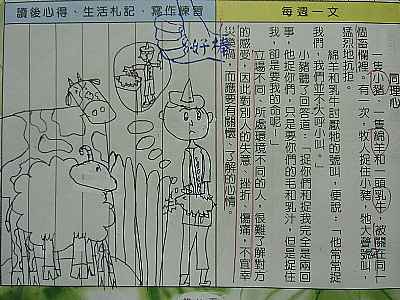 每週一文
讀後心得、生活札記、寫作練習
好棒
同理心
一隻小豬、一隻綿羊和一頭乳牛，被關在同一
個畜欄裡。有一次，牧人捉住小豬，牠大聲號叫，
猛烈地抗拒。
綿羊和乳牛討厭牠的號叫，便說：「他常常捉
我們，我們並不大呼小叫。」
小豬聽了回答道：「捉你們和捉我完全是兩回
事，他捉你們，只是要你們的毛和乳汁，但是捉住
我，卻是要我的命呢！」
立場不同、所處環境不同的人，很難了解對方
的感受，因此對別人的失意、挫折、傷痛，不宜幸
災樂禍，而應要有關懷、了解的心情。